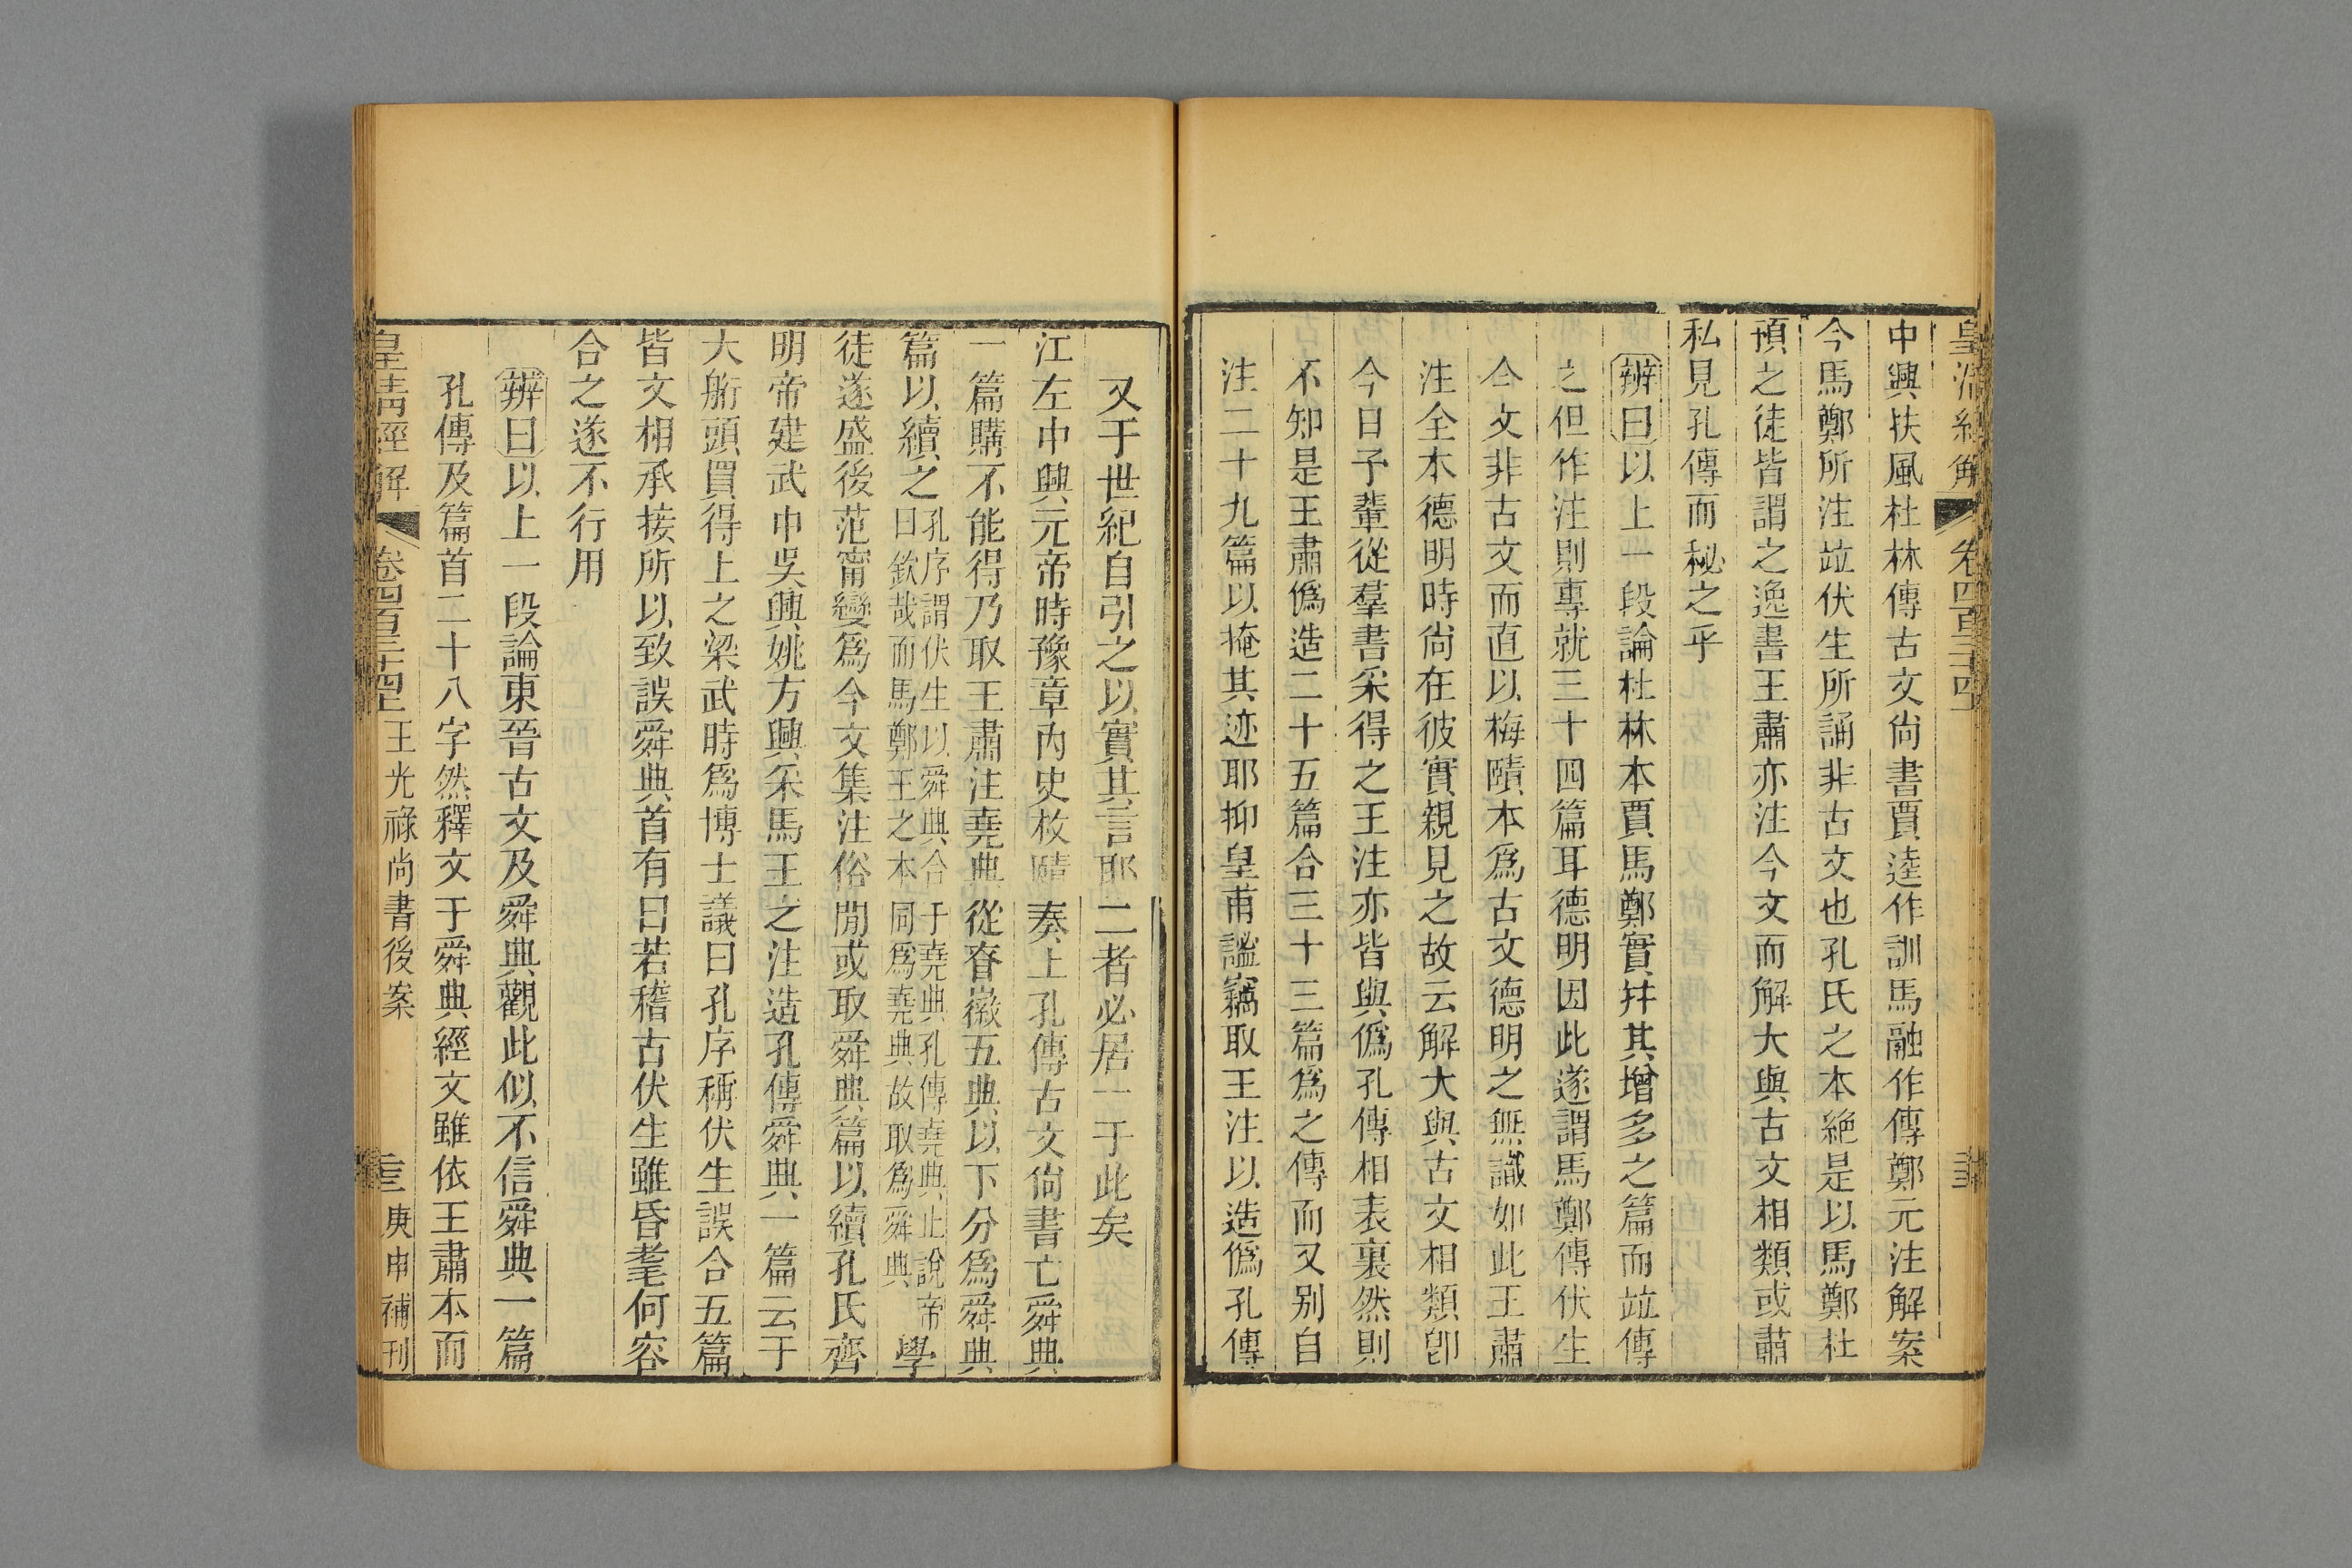 皇清經解
卷四百三十四
中興扶風杜林傳古文尙書賈逵作訓馬融作傳鄭元注解案
今馬鄭所注竝伏生所誦非古文也孔氏之本絕是以馬鄭杜
預之徒皆謂之逸書王肅亦注今文而解大與古文相類或肅
私見孔傳而秘之乎
辨曰以上一段論杜林本賈馬鄭實幷其增多之篇而竝傳
之但作注則專就三十四篇耳德明因此遂謂馬鄭傳伏生
今文非古文而直以梅賾本爲古文德明之無識如此王肅
注全本德明時尙在彼實親見之故云解大與古文相類卽
今日予輩從羣書采得之王注亦皆與僞孔傳相表裏然則
不知是王肅僞造二十五篇合三十三篇爲之傳而又别自
注二十九篇以掩其迹耶抑皇甫謐竊取王注以造僞孔傳
又于世紀自引之以實其言耶二者必居一于此矣
江左中興元帝時豫章內史枚賾奏上孔傳古文尙書亡舜典
一篇購不能得乃取王肅注堯典從眘徽五典以下分爲舜典
篇以續之孔序謂伏生以舜典合于堯典孔傳堯典止說帝
曰欽哉而馬鄭王之本同爲堯典故取爲舜典
學
徒遂盛後范甯變爲今文集注俗閒或取舜典篇以續孔氏齊
明帝建武中吳興姚方興采馬王之注造孔傳舜典一篇云于
大䑨頭買得上之梁武時爲博士議曰孔序稱伏生誤合五篇
皆文相承接所以致誤舜典首有曰若稽古伏生雖昏耄何容
合之遂不行用
辨曰以上一段論東晉古文及舜典觀此似不信舜典一篇
孔傳及篇首二十八字然釋文于舜典經文雖依王肅本而
皇清經解
卷四百三十四上
王光祿尚書後案
庚申補刊